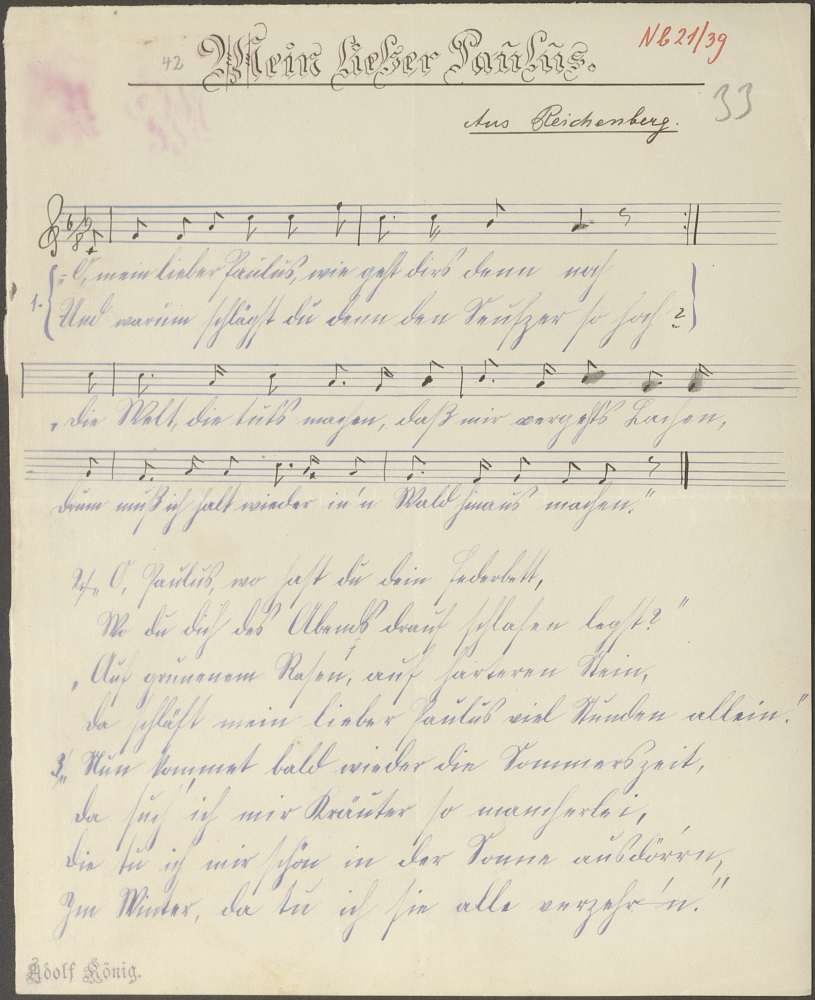 NB 21/39
42 Mein lieber Paulus.
33
Aus Reichenberg.
6/8
"O, mein lieber Paulus, wie geht dirs denn noch
1. Und warum schlägst du denn den Seufzer so hoch?
"Die Welt, die tuts machen, daß mir vergehts Lachen,
drum muß ich halt wieder in'n Wald hinaus machen."
2. "O, Paulus, wo hast du dein Federbett,
Wo du dich des Abends drauf schlafen legst?"
"Auf grünenem Rasen, auf harteren Stein,
da schläft mein lieber Paulus viel Stunden allein."
3. "Nun kommet bald wieder die Sommerszeit,
da such ich mir Kräuter so mancherlei,
die tu ich mir schön in der Sonne ausdörr'n,
Im Winter, da tu ich sie alle verzehr'n."
Adolf König.